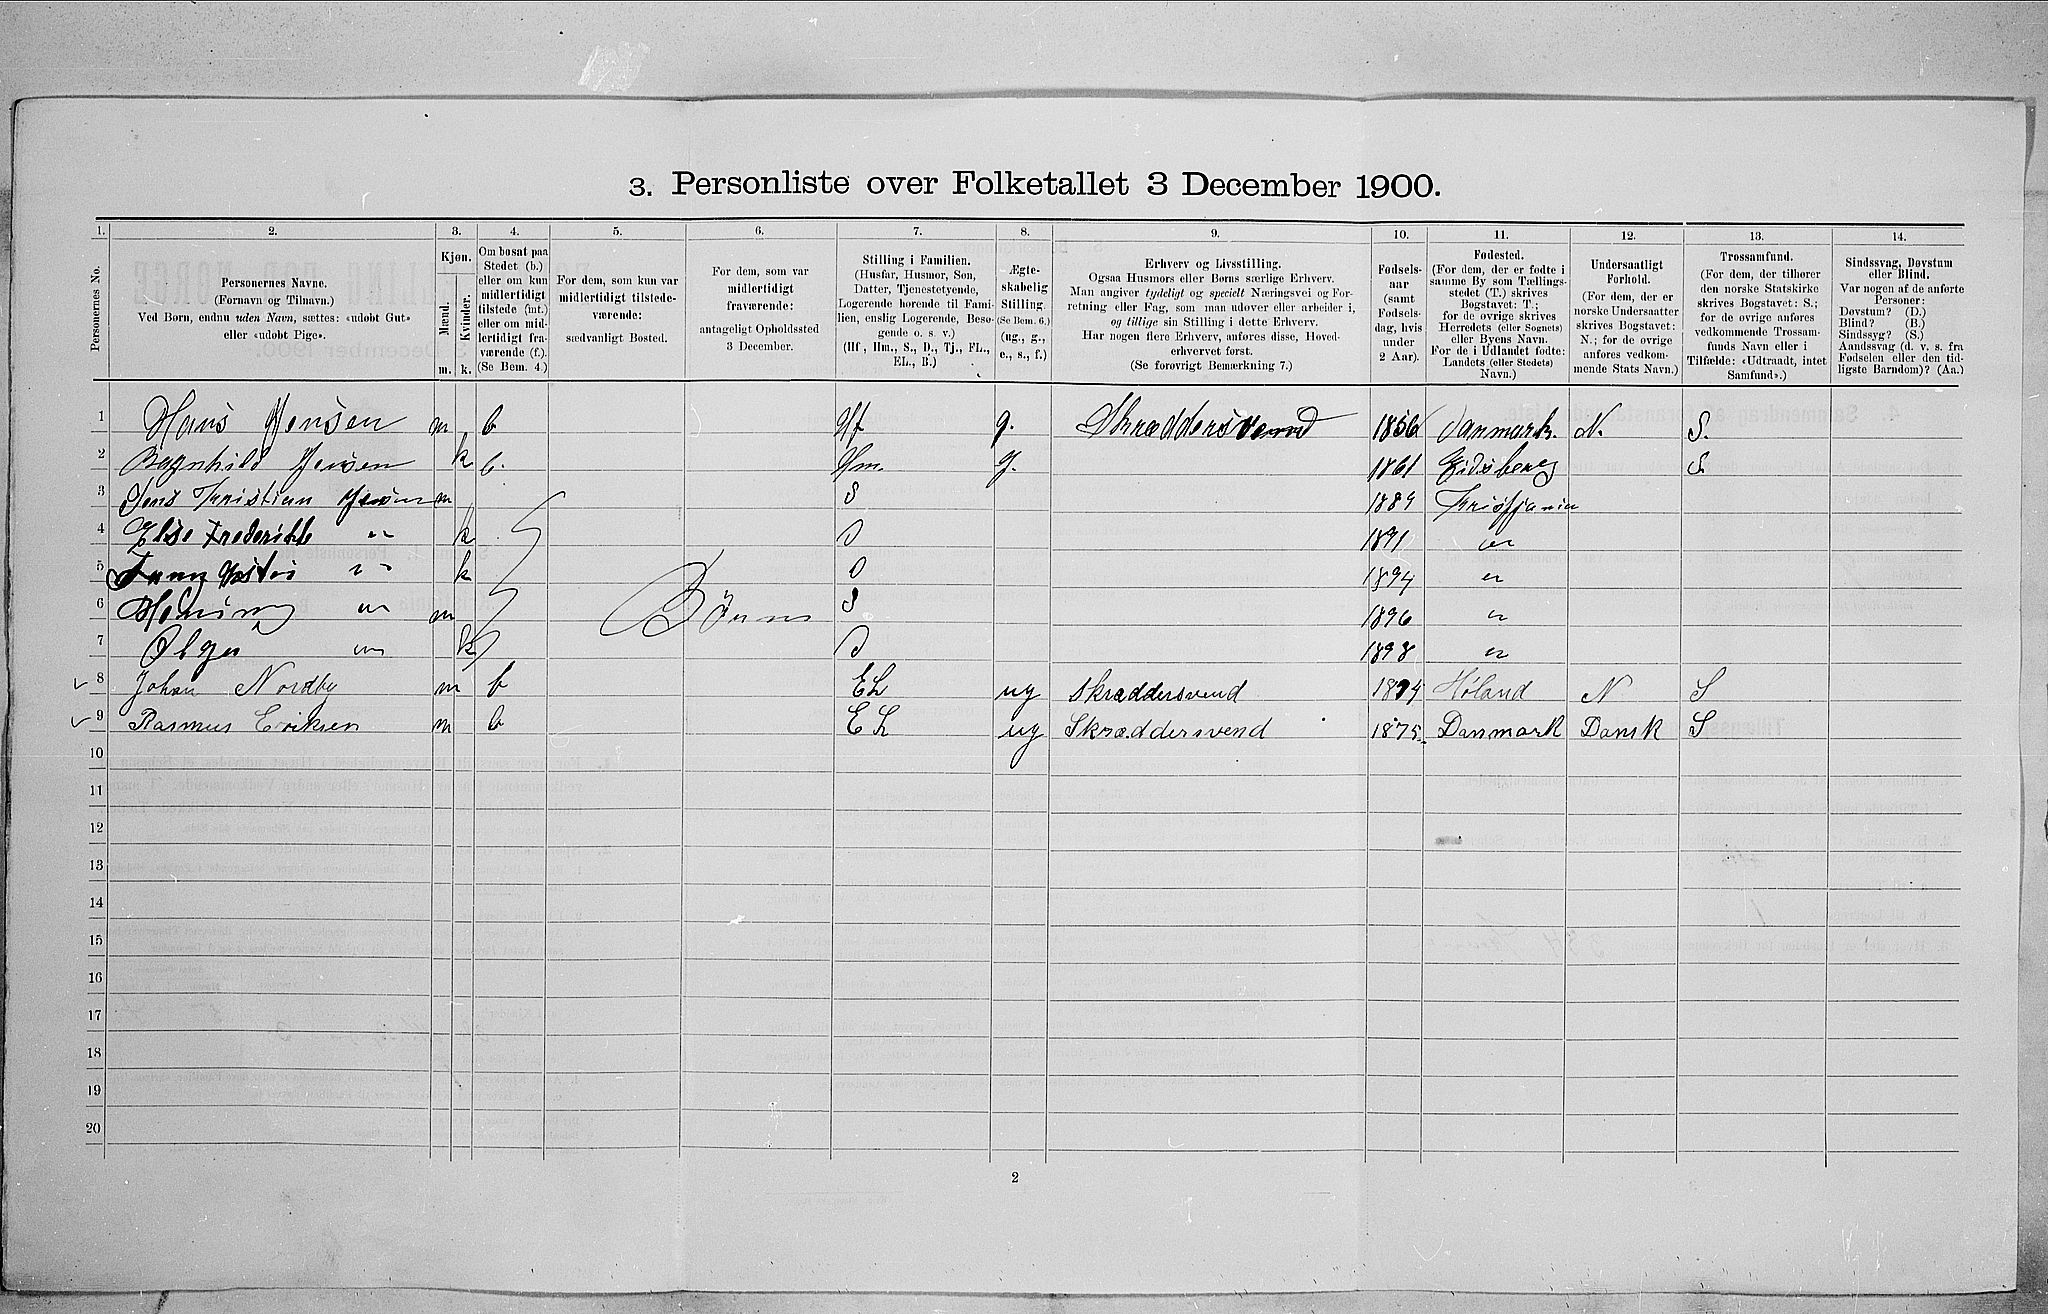 3. Personliste over Folketallet 3 December 1900.
1. 2. 3. 4. 5. 6. 7. 8. 9. 10. 11. 12. 13. 14.
Personernes No.
Personernes Navne.
(Fornavn og Tilnavn.)
Ved Børn, endnu uden Navn, sættes: «udøbt Gut»
eller «udøbt Pige».
Kjøn.
Mænd. Kvinder.
m. k.
Om bosat paa
Stedet (b.)
eller om kun
midlertidigt
tilstede (mt.)
eller om mid-
lertidigt fra-
værende (f.).
(Se Bem. 4.)
For dem, som kun var
midlertidigt tilstede-
værende:
sædvanligt Bosted.
For dem, som var
midlertidigt
fraværende:
antageligt Opholdssted
3 December.
Stilling i Familien.
(Husfar, Husmor, Søn,
Datter, Tjenestetyende,
Logerende hørende til Fami-
lien, enslig Logerende, Besø-
gende o. s. v.)
(Hf., Hm., S., D., Tj., FL.,
EL., B.)
Ægte-
skabelig
Stilling.
(Se Bem. 6.)
(ug., g.,
e., s., f.)
Erhverv og Livsstilling.
Ogsaa Husmors eller Børns særlige Erhverv.
Man angiver tydeligt og specielt Næringsvei og For-
retning eller Fag, som man udøver eller arbeider i,
og tillige sin Stilling i dette Erhverv.
Har nogen flere Erhverv, anføres disse, Hoved-
erhvervet først.
(Se forøvrigt Bemærkning 7.)
Fødsels-
aar
(samt
Fødsels-
dag, hvis
under
2 Aar).
Fødested.
(For dem, der er fødte i
samme By som Tællings-
stedet (T.) skrives
Bogstavet: T.;
for de øvrige skrives
Herredets (eller Sognets)
eller Byens Navn.
For de i Udlandet fødte:
Landets (eller Stedets)
Navn.)
Undersaatligt
Forhold.
(For dem, der er
norske Undersaatter
skrives Bogstavet:
N.; for de øvrige
anføres vedkom-
mende Stats Navn.)
Trossamfund.
(For dem, der tilhører
den norske Statskirke
skrives Bogstavet: S.;
for de øvrige anføres
vedkommende Trossam-
funds Navn eller i
Tilfælde: «Udtraadt, intet
Samfund».)
Sindssvag, Døvstum
eller Blind.
Var nogen af de anførte
Personer:
Døvstum? (D.)
Blind? (B.)
Sindssyg? (S.)
Aandssvag (d. v. s. fra
Fødselen eller den tid-
ligste Barndom)? (Aa.)
1 Hans Jensen m b Hf g. Skræddersvend 1856 Danmark. N. S.
2 Ragnhild Jensen k b. Hm. g. 1861 Eidsberg S
3 Jens Kristian Jensen m S 1889 Kristjania
4 Elise Frederikke " k D 1891 "
5 " k D 1894 "
6 Henning " m Børn S 1896 "
7 Olga " k D 1898 "
8 Johan Nordby m b EL ug Skræddersvend 1874 Høland N S
9 Rasmus Eriksen m b EL ug Skræddersvend 1875 Danmark Dansk S
10
11
12
13
14
15
16
17
18
19
20
2